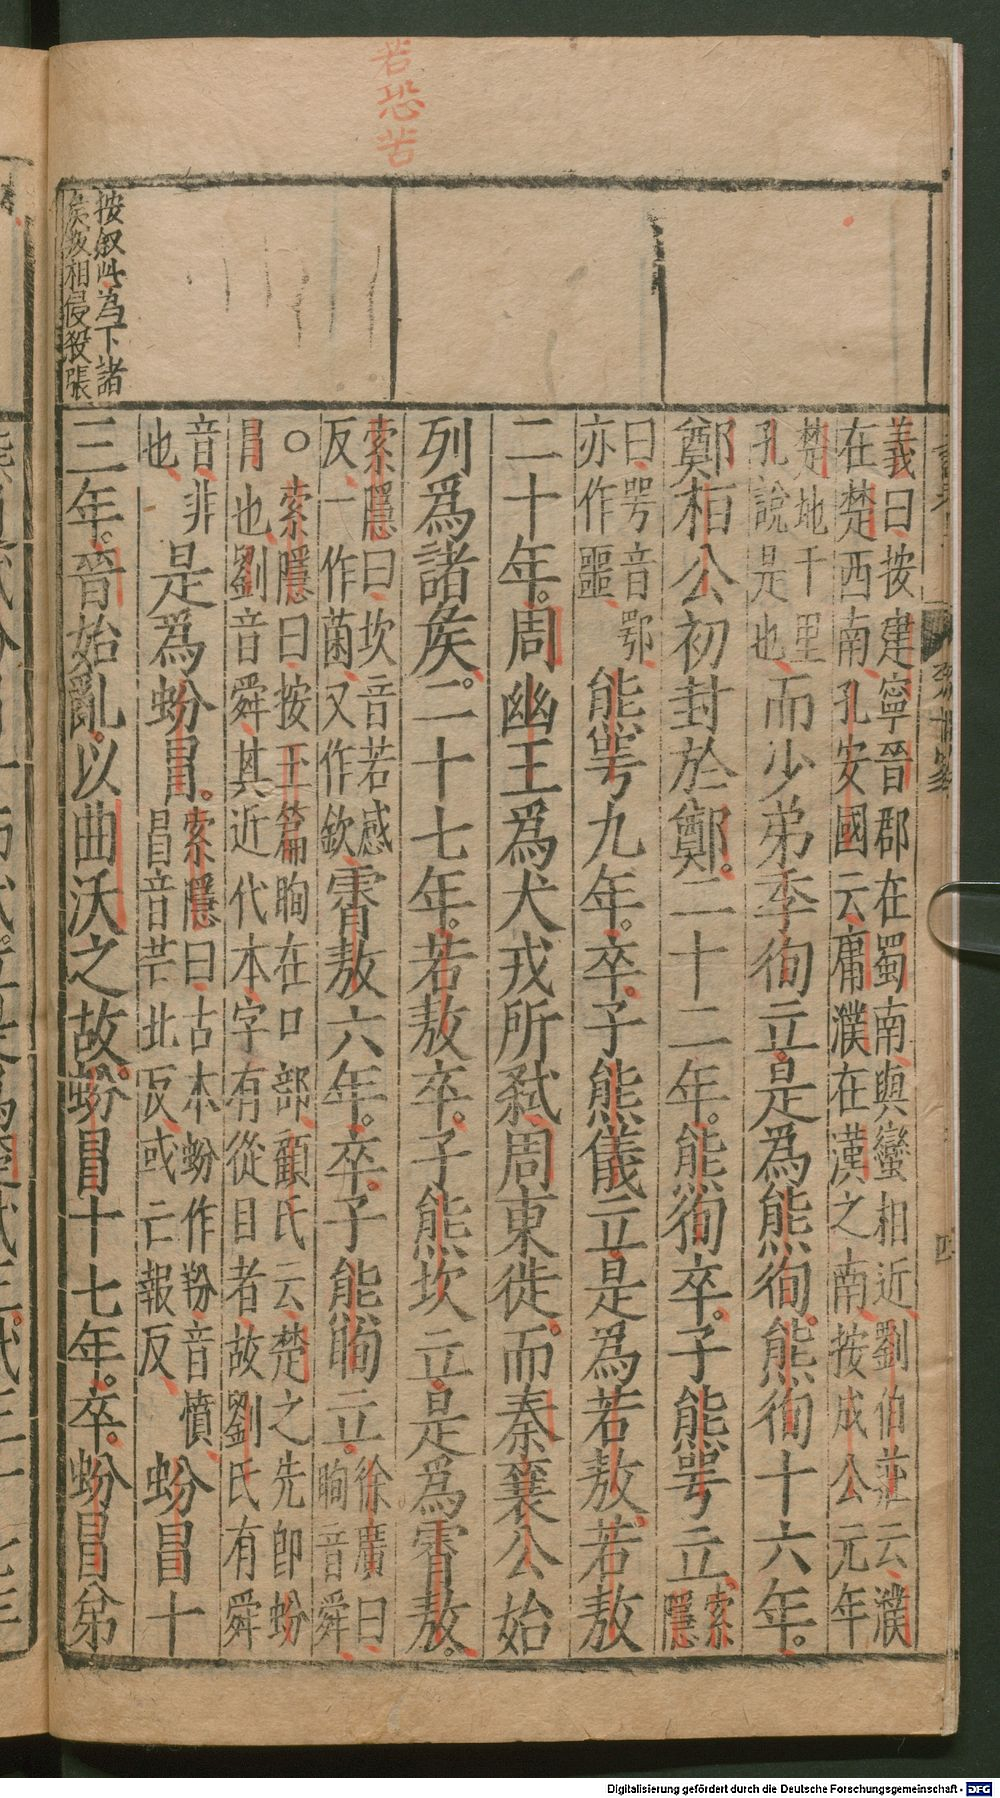 若恐苦
義曰按建寧晉郡在蜀南與蠻相近劉伯莊云濮
在楚西南孔安國云庸濮在漢之南按成公元年
楚地千里
孔說是也
而少弟季徇立是爲熊徇熊徇十六年
鄭桓公初封於鄭二十二年熊徇卒子熊咢立索
隱
曰咢音鄂
亦作噩
熊咢九年卒子熊儀立是爲若敖若敖
二十年周幽王爲犬戎所弒周東徙而秦襄公始
列爲諸矦二十七年若敖卒子熊坎立是爲霄敖
索隱曰坎音若感
反一作菌又作欽
霄敖六年卒子熊眴立
徐廣曰
眴音舜
○索隱曰按玉篇眴在口部顧氏云楚之先即蚡
冒也劉音舜其近代本字有從目者故劉氏有舜
音非
也
是爲蚡冒
索隱曰古本蚡作羒音憤
冒音芒北反或亡報反
蚡冒十
三年晉始亂以曲沃之故蚡冒十七年卒蚡冒弟
按叙此為下諸
矦叛相侵殺張
Digitalisierung gefördert durch die Deutsche Forschungsgemeinschaft - DFG